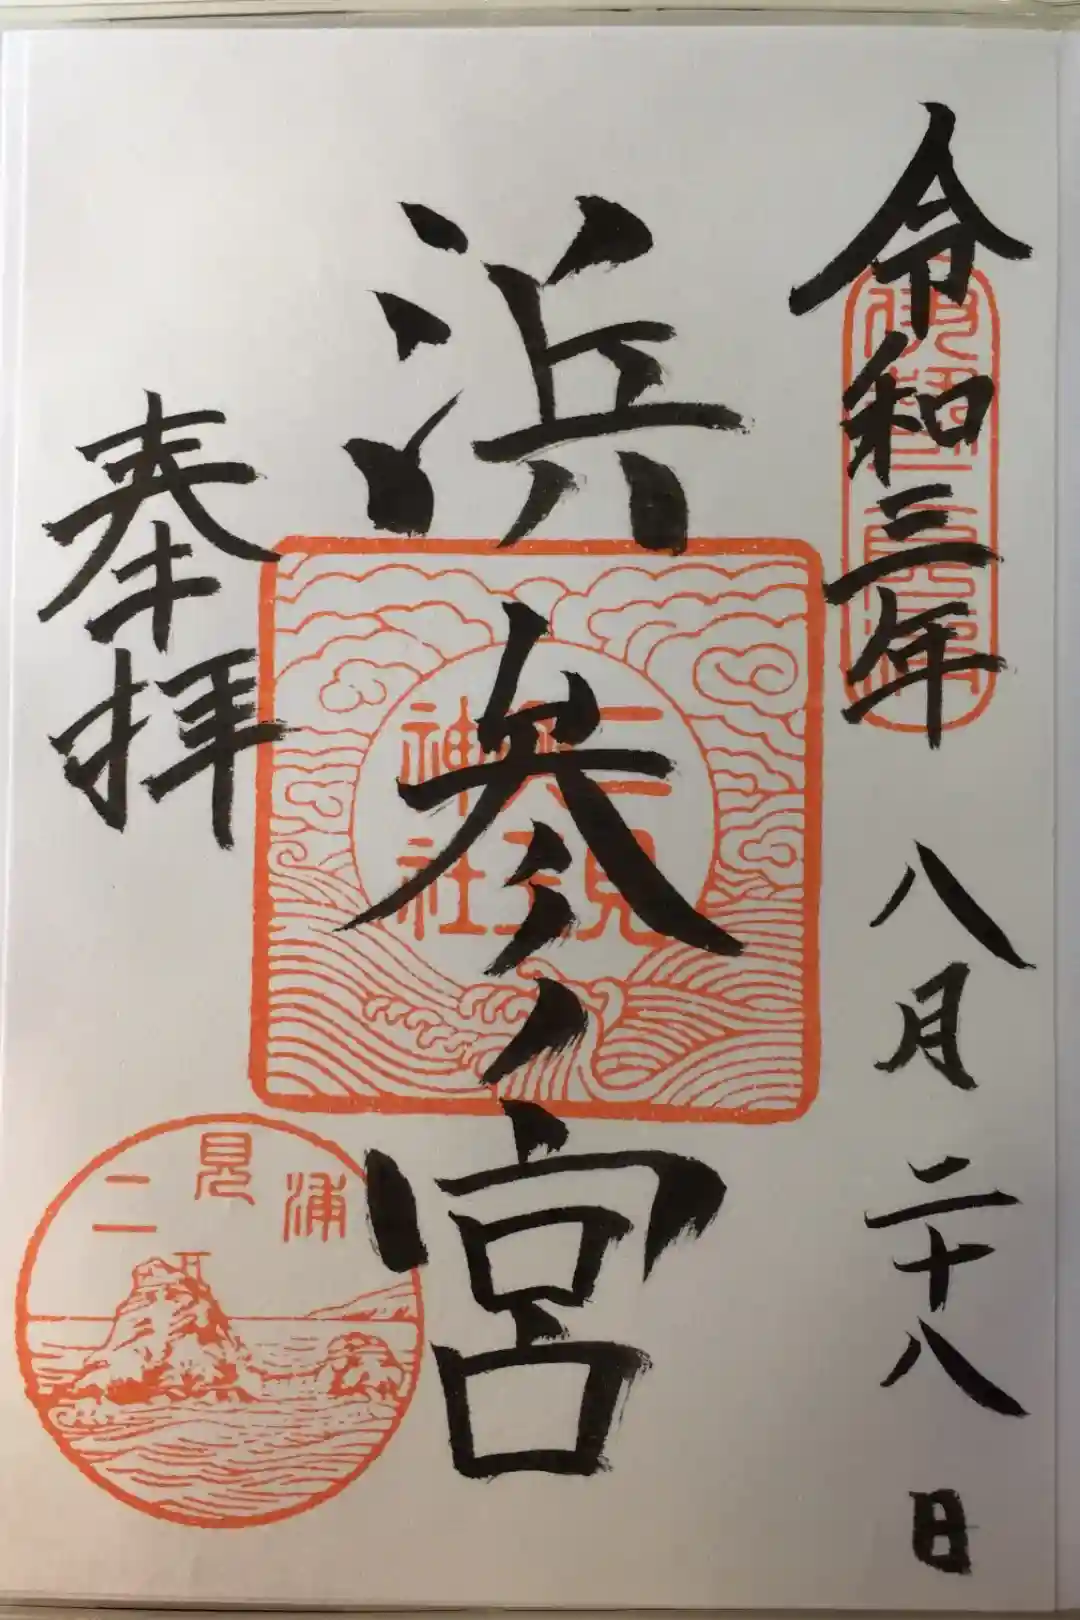 令和三年八月二十八日
伊勢二見浦
浜参ノ宮
二見
興玉
神社
奉拝
二見浦